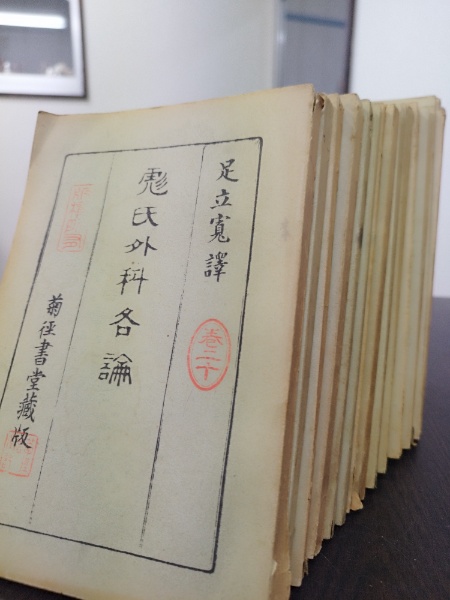 足立寛譯
卷二十
彪氏外科各論
菊徑書堂藏版